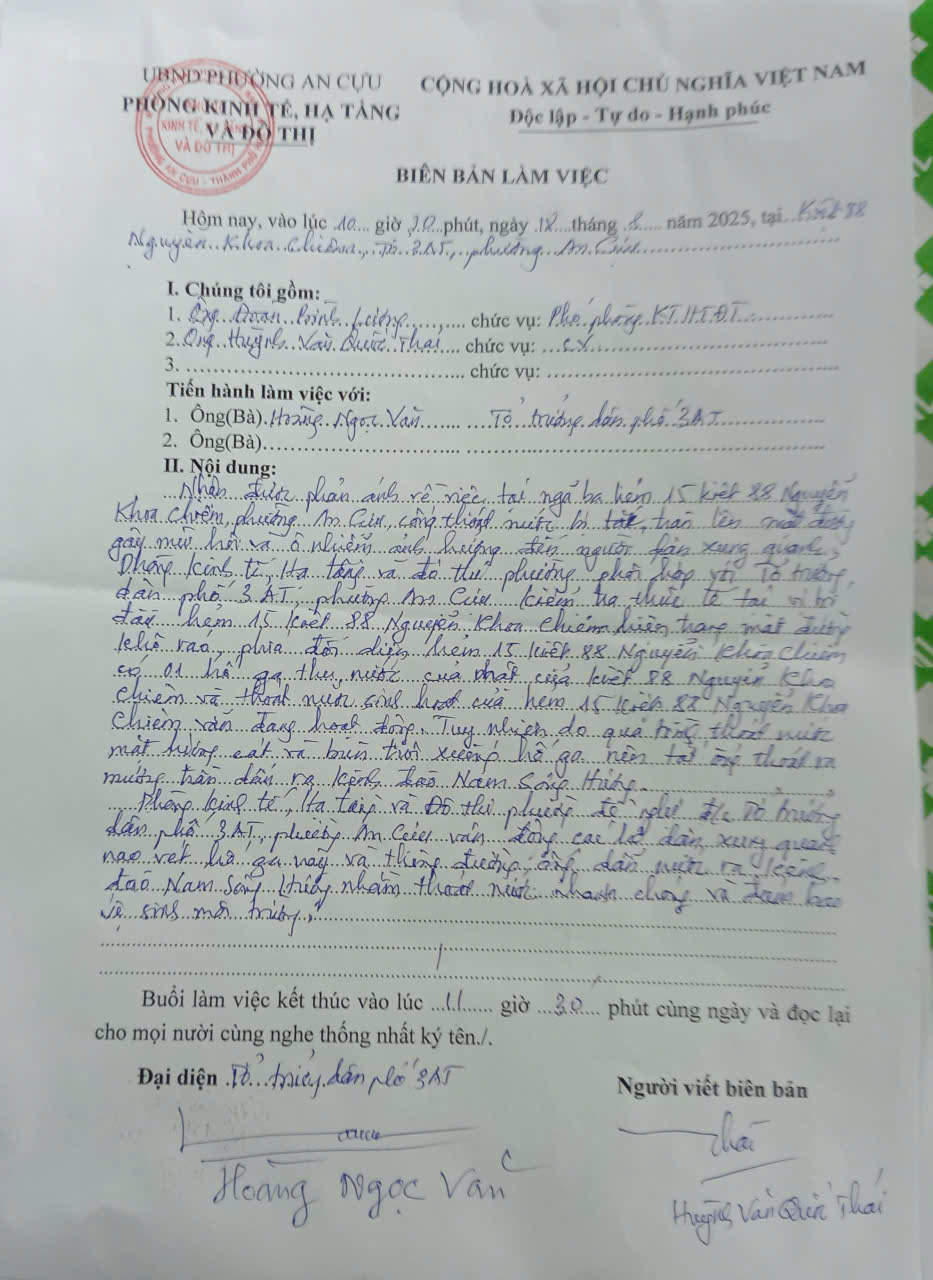 UBND PHƯỜNG AN CỰU
PHÒNG KINH TẾ, HẠ TẦNG
VÀ ĐÔ THỊ
CỘNG HOÀ XÃ HỘI CHỦ NGHĨA VIỆT NAM
Độc lập - Tự do - Hạnh phúc
BIÊN BẢN LÀM VIỆC
Hôm nay, vào lúc 10 giờ 30 phút, ngày 18 tháng 8 năm 2025, tại Kiệt 88
Nguyễn Khoa Chiêm, Tổ 3AT, phường An Cựu
I. Chúng tôi gồm:
1. Ông Đoàn Lương chức vụ: Phó phòng KT,HT,ĐT
2. Ông Huỳnh Văn Quốc Thái chức vụ: CV
3. chức vụ:
Tiến hành làm việc với:
1. Ông(Bà). Hoàng Ngọc Vân Tổ trưởng dân phố 3AT
2. Ông(Bà)
II. Nội dung:
Nhận được phản ánh về việc tại ngã ba hẻm 15 kiệt 88 Nguyễn
Khoa Chiêm, phường An Cựu, cống thoát nước bị tắt, tràn lên mặt đường
gây mùi hôi và ô nhiễm ảnh hưởng đến người dân xung quanh,
Phòng Kinh tế, Hạ tầng và đô thị phường phối hợp với Tổ trưởng
dân phố 3AT, phường An Cựu kiểm tra thực tế tại vị trí
đầu hẻm 15 kiệt 88 Nguyễn Khoa Chiêm hiện trạng mặt đường
khô ráo, phía đối diện hẻm 15 kiệt 88 Nguyễn Khoa Chiêm
có 01 hố ga thu nước của kiệt 88 Nguyễn Khoa
Chiêm và thoát nước sinh hoạt của hẻm 15 kiệt 88 Nguyễn Khoa
Chiêm vẫn đang hoạt động. Tuy nhiên do quá trình thoát nước
mặt lượng cát và bùn trôi xuống hố ga nên tắt ống thoát ra
mương trần dẫn ra kênh đào Nam Sông Hương.
Phòng Kinh tế, Hạ tầng và Đô thị phường đề nghị đ/c Tổ trưởng
dân phố 3AT, phường An Cựu vận động các hộ dân xung quanh
nạo vét hố ga này và thông đường ống dẫn nước ra kênh
đào Nam sông Hương nhằm thoát nước nhanh chóng và đảm bảo
vệ sinh môi trường./.
Buổi làm việc kết thúc vào lúc 11 giờ 30 phút cùng ngày và đọc lại
cho mọi nười cùng nghe thống nhất ký tên./.
Đại diện Tổ trưởng dân phố 3AT
Người viết biên bản
Hoàng Ngọc Vân
Thái
Huỳnh Văn Quốc Thái